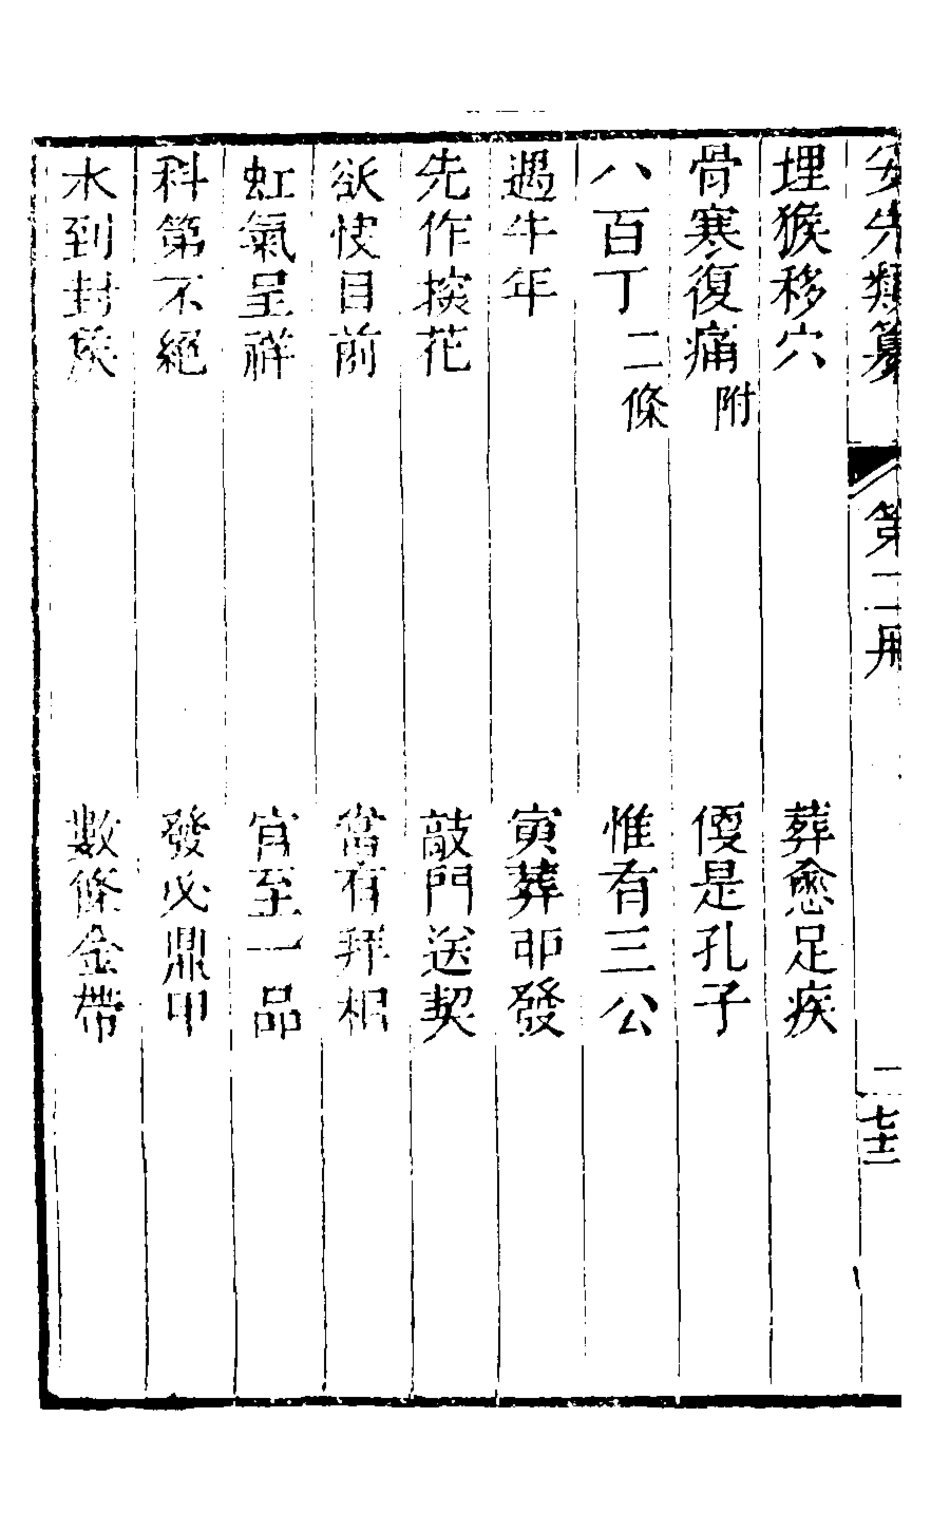 安先類纂 第二冊 一 七十二
埋猴移穴 葬愈足疾
骨寒復痛附 便是孔子
八百丁二條 惟有三公
遇牛年 寅葬卯發
先作探花 敲門送契
欲快目前 當有拜相
虹氣呈祥 官至一品
科第不絕 發必鼎甲
水到封侯 數條金帶